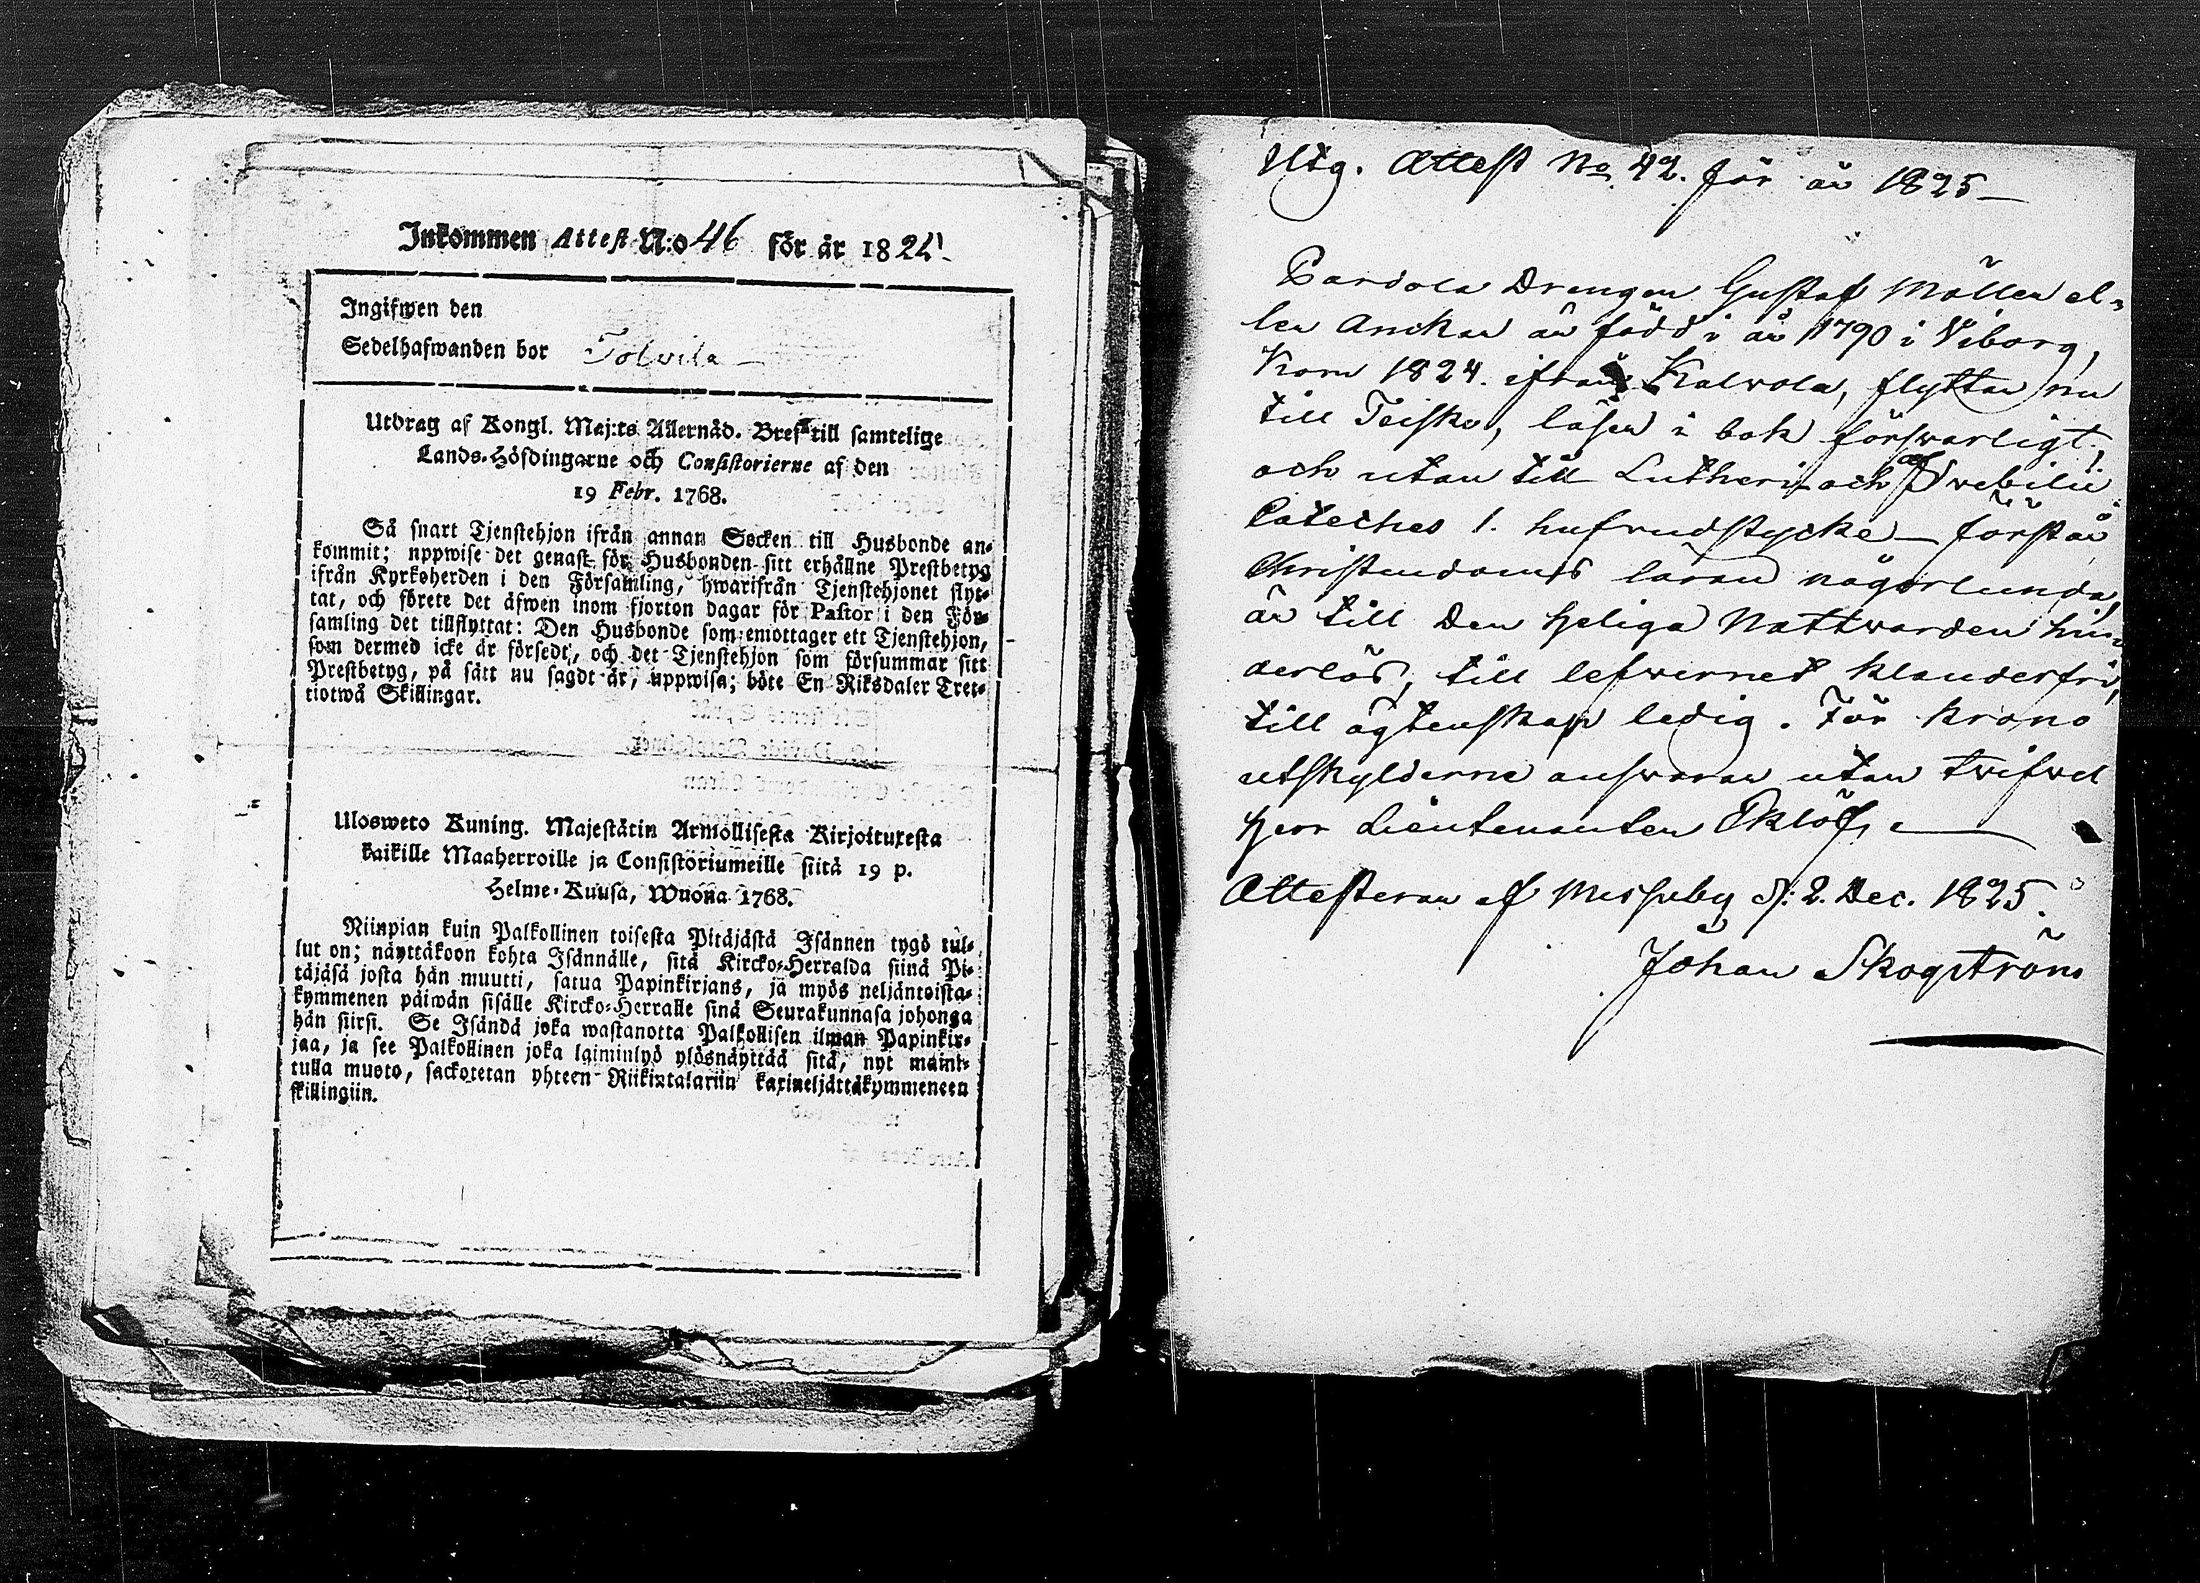 Inkommen Attest N:o 46 för år 1824.
Ingifwen den
Sedelhafwanden bor Tolvila
Utdrag af Kongl. Maj:ts Allernåd. Bref till samtelige
Lands-Höfdingarne och Consistorierne af den
19 Febr. 1768.
Så snart Tjenstehjon ifrån annan Socken till Husbonde an-
kommit; uppwise det genast för Husbonden sitt erhållne Prestbetyg
ifrån Kyrkoherden i den Församling, hwarifrån Tjenstehjonet flyt-
tat, och förete det äfwen inom fjorton dagar för Pastor i den För-
samling det tillflyttat: Den Husbonde som emottager ett Tjenstehjon,
som dermed icke är försedt, och det Tjenstehjon som försummar sitt
Prestbetyg, på sätt nu sagdt är, uppwisa; böte En Riksdaler Tret-
tiotwå Skillingar.
Ulosweto Kuning. Majestätin Armollisesta Kirjoituxesta
kaikille Maaherroille ja Consistoriumeille siitä 19 p.
Helme-Kuusa, Wuona 1768.
Niinpian kuin Palkollinen toisesta Pitäjästä Isännen tygö tul-
lut on; näyttäkoon kohta Isännälle, sitä Kircko-Herralda siinä Pi-
täjäsä josta hän muutti, saatua Papinkirjans, ja myös neljäntoista-
kymmenen päiwän sisälle Kircko-Herralle sinä Seurakunnasa johonga
hän siirsi. Se Isändä joka wastanotta Palkollisen ilman Papinkir-
jaa, ja see Palkollinen joka laiminlyö ylösnäyttää sitä, nyt maini-
tulla muoto, sackotetan yhteen Riikintalariin kaxineljättäkymmeneen
skillingiin.
Utg. Attest No 42. för år 1825
Pardola Drengen Gustaf Möller el-
ler Anckar är född i år 1790 i Viborg,
Kom 1824. ifrån Kalvola, flyttar nu
till Teisko, läser i bok förswarligt,
och utan till Lutheri och af Svebilii
Cateches 1. hufvudstycke förstår
Christendoms läran någorlunda,
är till Den Heliga Nattwarden hin-
derlös, till lefwernet klanderfri,
till ägtenskap ledig. För krono
utskylderne answarar utan twifwel
Herr Lieutenanten Eklöf,
Attesterar af Messuby d: 2. Dec. 1825.
Johan Skogström